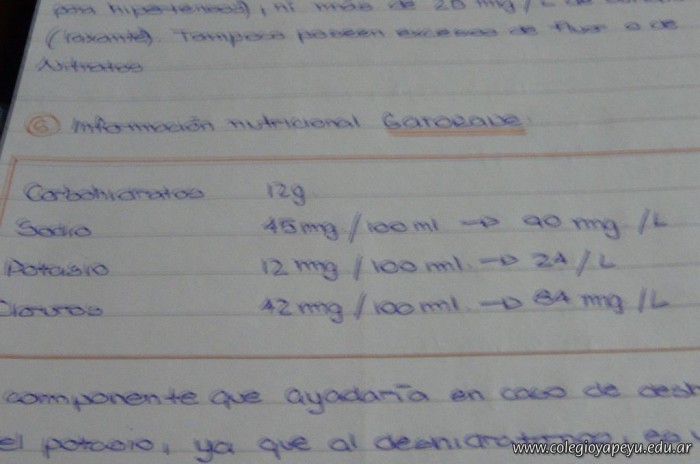 para hipertensos), ni más de 20 mg/L de
(laxante). Tampoco poseen excesos de fluor o de
Nitratos
6 Información nutricional Gatorade
Carbohidratos 12g
Sodio 45 mg/100 ml → 90 mg/L
Potasio 12 mg/100 ml. → 24/L
Cloruros 42 mg/100 ml. → 84 mg/L
componente que ayudaría en caso de desh
el potasio, ya que al deshidratarnos, es
www.colegioyapeyu.edu.ar